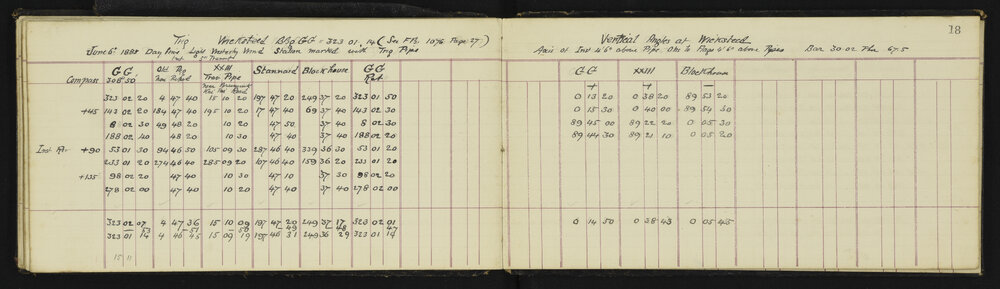 18
Trig Wicksteed Brg GG = 323 01 14 (See F.Bk 1076 Page 27)
June 6th 1888 Day Fine Light Westerly Wind Station marked with Trig Pipe
GG Old Trig XXIII Stannard Blockhouse GG
Trav Pipe
Compass 308 50 Ret
323 02 20 4 47 40 15 10 20 197 47 20 249 37 20 323 01 50
+45 143 02 20 184 47 40 195 10 20 17 47 40 69 37 40 143 02 30
8 02 30 49 48 20 10 20 47 50 37 40 8 02 30
188 02 40 48 20 10 30 47 40 37 40 188 02 20
+90 53 01 30 94 46 50 105 09 30 287 46 40 339 36 30 53 01 20
233 01 20 274 46 40 285 09 20 107 46 40 159 36 20 233 01 20
+135 98 02 20 47 40 10 30 47 10 37 30 98 02 20
278 02 00 47 40 10 20 47 40 37 40 278 02 00
323 02 07 4 47 36 15 10 09 197 47 20 249 37 17 323 02 01
53 51 50 49 48 47
323 01 14 4 46 45 15 09 19 197 46 31 249 36 29 323 01 14
15 11
Vertical Angles at Wicksteed
Axis of Inst 4'6" above Pipe. Obs to Flags 9'6" above Pipes Bar 30.02 Ther 67.5
GG XXIII Blockhouse
+ + –
0 13 20 0 38 20 89 53 20
0 15 30 0 40 00 89 54 30
89 45 00 89 22 20 0 05 30
89 44 30 89 21 10 0 05 20
0 14 50 0 38 43 0 05 45